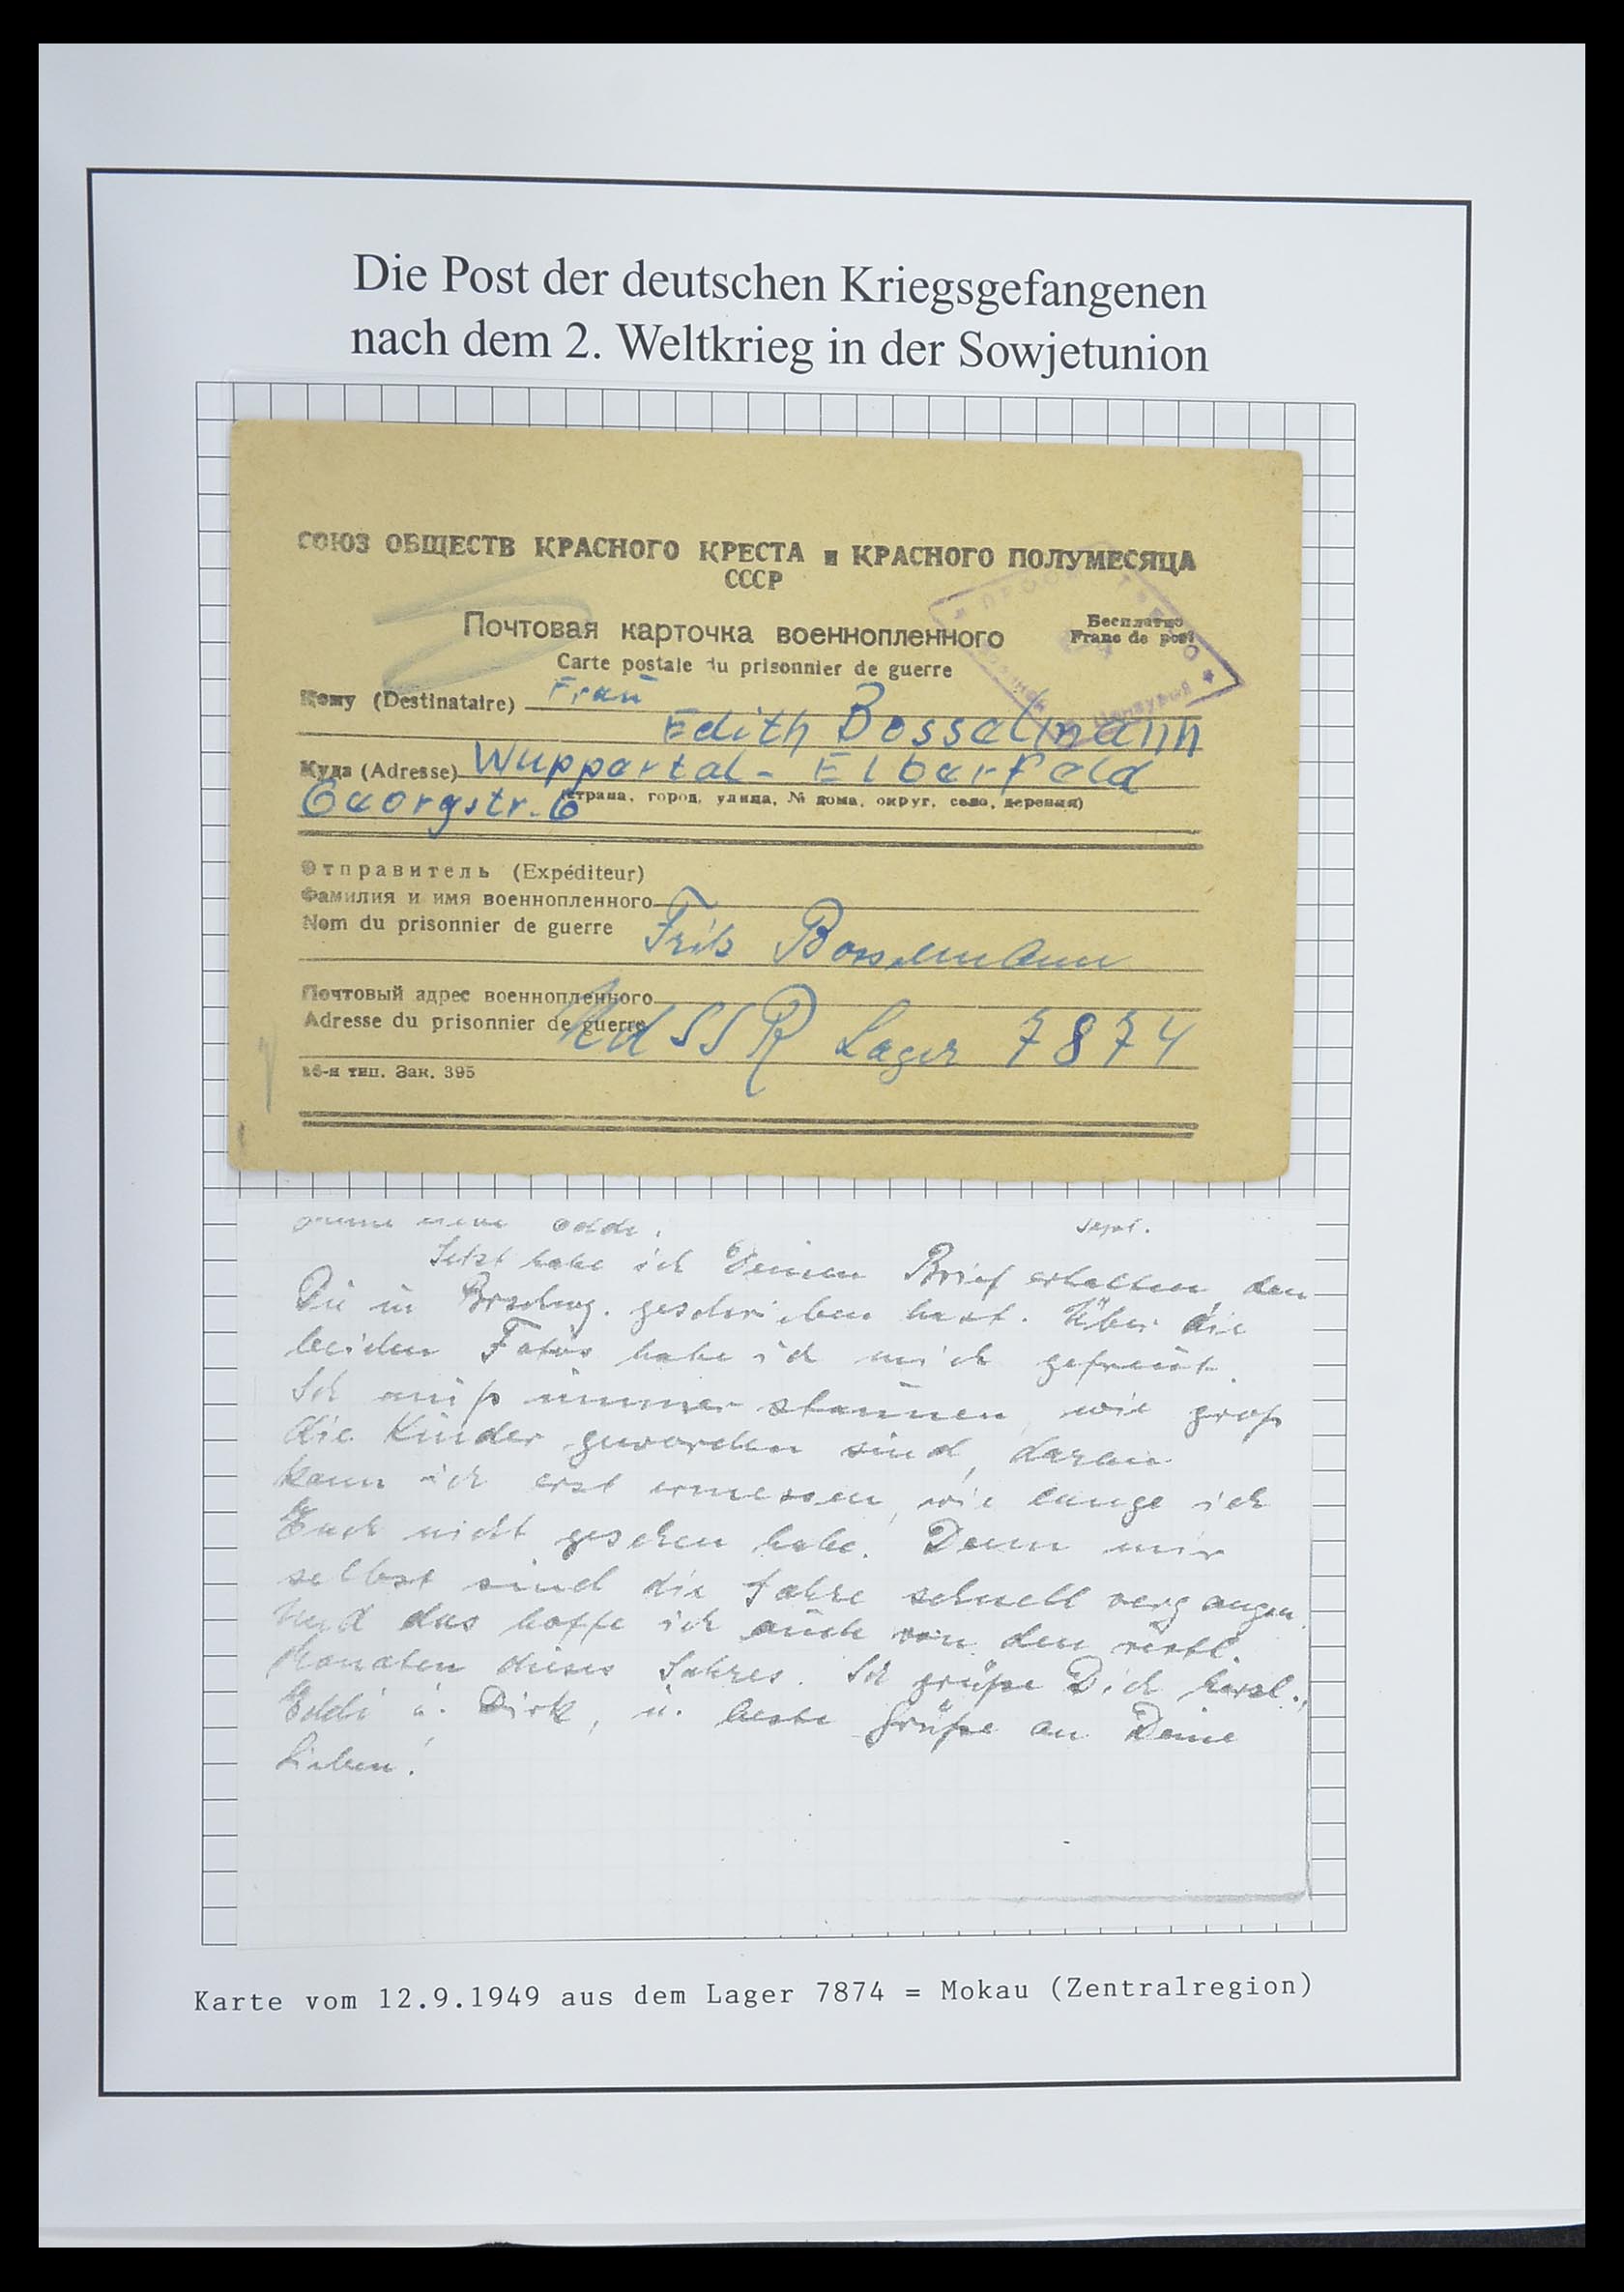 Die Post der deutschen Kriegsgefangenen
nach dem 2. Weltkrieg in der Sowjetunion
СОЮЗ ОБЩЕСТВ КРАСНОГО КРЕСТА и КРАСНОГО ПОЛУМЕСЯЦА
СССР
Почтовая карточка военнопленного
Бесплатно
Franc de port
Carte postale du prisonnier de guerre
Кому (Destinataire) Frau
Edith Bosselmann
Куда (Adresse) Wuppertal- Elberfeld
Georgstr. 6 (страна, город, улица, № дома, округ, село, деревня)
Отправитель (Expéditeur)
Фамилия и имя военнопленного
Nom du prisonnier de guerre Fritz Bosselmann
Почтовый адрес военнопленного
Adresse du prisonnier de guerre UdSSR Lager 7874
16-я тип. Зак. 395
Sept.
Jetzt habe ich Deinen Brief erhalten, den
Du in geschrieben hast. Über die
beiden Fotos habe ich mich gefreut.
Ich muß immer staunen, wie groß
die Kinder geworden sind, daran
kann ich erst ermessen, wie lange ich
Euch nicht gesehen habe. Denn mir
selbst sind die Jahre schnell vergangen.
Und das hoffe ich auch von den restl.
Monaten dieses Jahres. Ich grüße Dich herzl.,
Eddi u. Dirk, u. beste Grüße an Deine
Lieben!
Karte vom 12.9.1949 aus dem Lager 7874 = Mokau (Zentralregion)